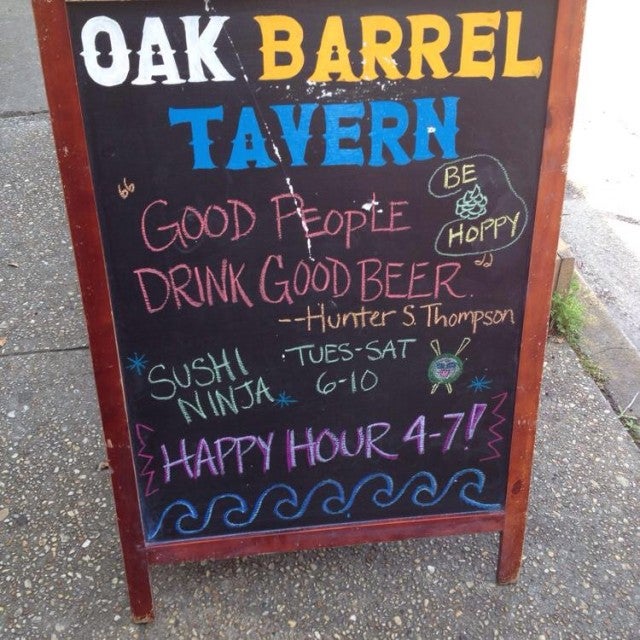 OAK BARREL
TAVERN
BE
HOPPY
“GOOD PEOPLE
DRINK GOOD BEER.”
--Hunter S. Thompson
SUSHI
NINJA
TUES-SAT
6-10
HAPPY HOUR 4-7!